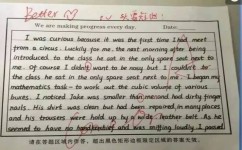 Better
We are making progress every day. Date:
I was curious because it was the first time I had met
from a circus. Luckily for me, the next morning after being
introduced to the class he sat in the only spare seat next to
me. Of course I didn't want to be nosy but I couldn't to
the class he sat in the only spare seat next to me. I began my
mathematics task - to work out the cubic volume of various
boxes. I noticed Jake was smaller than me and had dirty finger
nails. His shirt was clean but had been repaired in many places
and his trousers were hold up by a wide leather belt. As he
seemed to have no handkerchief and was sniffing loudly I passed
请在答题区域内作答，超出黑色矩形边框限定区域的答案无效。